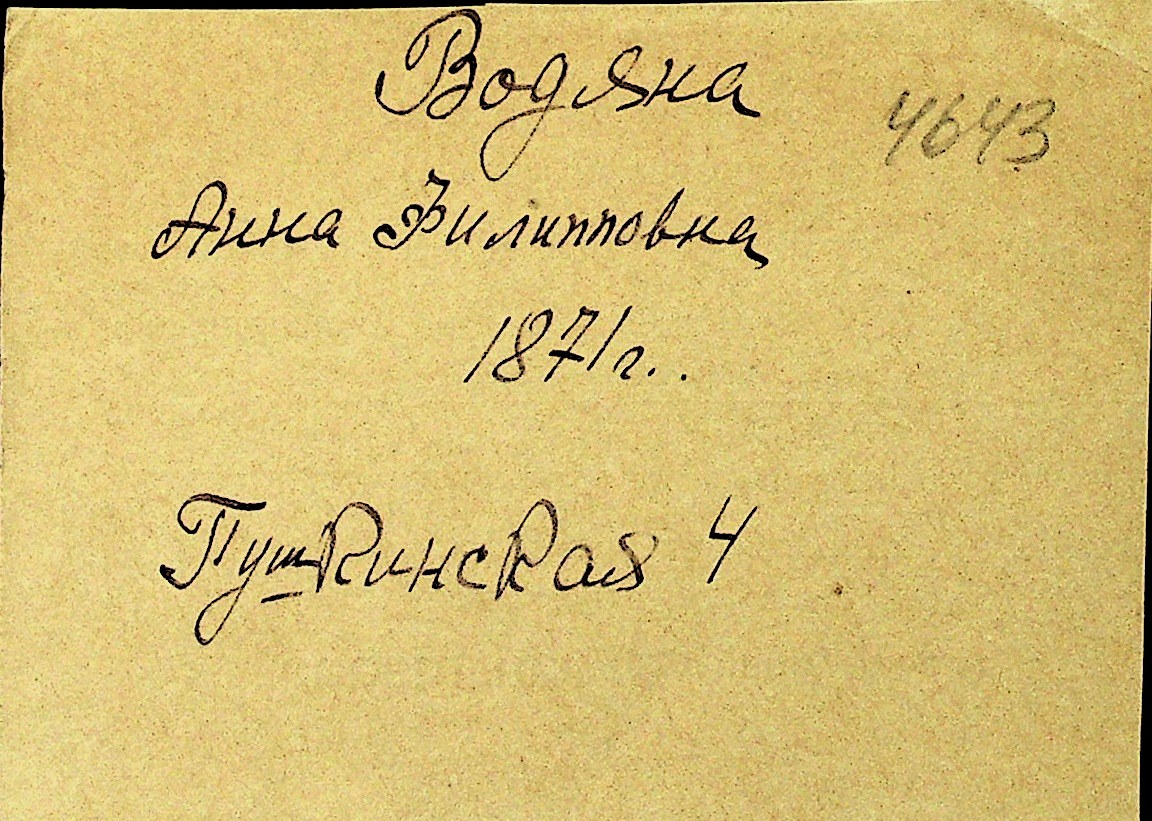 Водяна
4643
Анна Филипповна
1871г..
Пушкинская 4